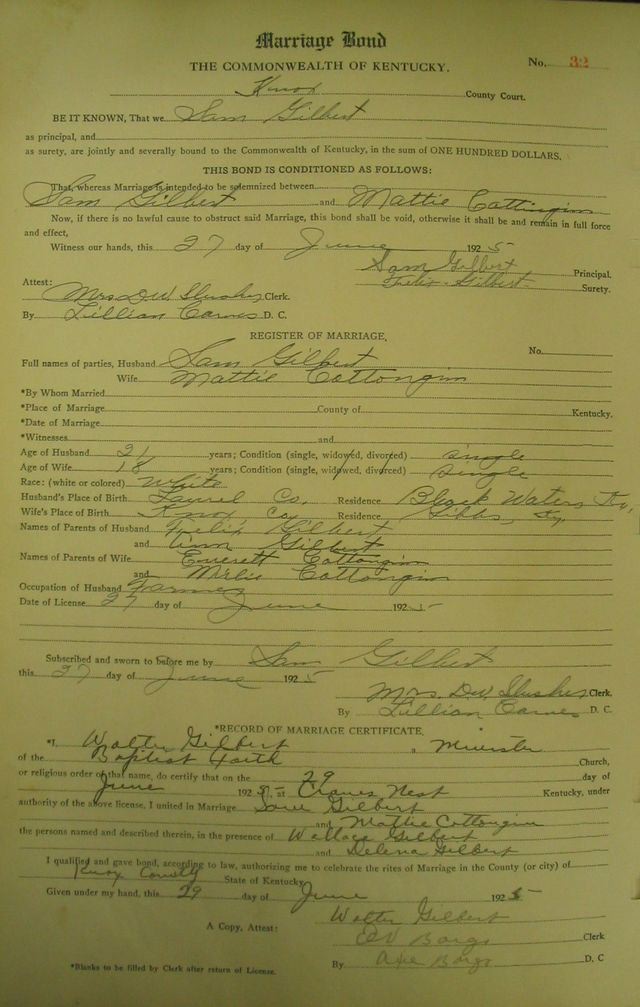 Marriage Bond
THE COMMONWEALTH OF KENTUCKY. No. 32
Knox County Court.
BE IT KNOWN, That we Sam Gilbert
as principal, and
as surety, are jointly and severally bound to the Commonwealth of Kentucky, in the sum of ONE HUNDRED DOLLARS.
THIS BOND IS CONDITIONED AS FOLLOWS:
That, whereas Marriage is intended to be solemnized between
Sam Gilbert and Mattie Cottongim
Now, if there is no lawful cause to obstruct said Marriage, this bond shall be void, otherwise it shall be and remain in full force
and effect,
Witness our hands, this 27 day of June 1925
Sam Gilbert Principal.
Felix Gilbert Surety.
Attest:
Mrs DW Slusher Clerk.
By Lillian Carnes D. C.
REGISTER OF MARRIAGE.
No.
Full names of parties, Husband Sam Gilbert
Wife Mattie Cottongim
*By Whom Married
*Place of Marriage County of Kentucky.
*Date of Marriage
*Witnesses and
Age of Husband 21 years; Condition (single, widowed, divorced) single
Age of Wife 18 years; Condition (single, widowed, divorced) single
Race: (white or colored) White
Husband's Place of Birth Laurel Co. Residence Black Water, Ky,
Wife's Place of Birth Knox Co, Residence Gibbs, Ky
Names of Parents of Husband Felix Gilbert
and Ann Gilbert
Names of Parents of Wife Everett Cottongim
and Cottongim
Occupation of Husband Farmer
Date of License 27 day of June 1925
Subscribed and sworn to before me by Sam Gilbert
this 27 day of June 1925
Mrs. DW Slusher Clerk.
By Lillian Carnes D. C.
*RECORD OF MARRIAGE CERTIFICATE.
*I, Walter Gilbert a Minister
of the Baptist Faith Church,
or religious order of that name, do certify that on the 29 day of
June 1925 at Cranes Nest Kentucky, under
authority of the above license, I united in Marriage Sam Gilbert
and Mattie Cottongim
the persons named and described therein, in the presence of Wallace Gilbert
and Delena Gilbert
I qualified and gave bond, according to law, authorizing me to celebrate the rites of Marriage in the County (or city) of
Knox County State of Kentucky
Given under my hand, this 29 day of June 1925
Walter Gilbert
A Copy, Attest: Clerk
By D. C
*Blanks to be filled by Clerk after return of License.